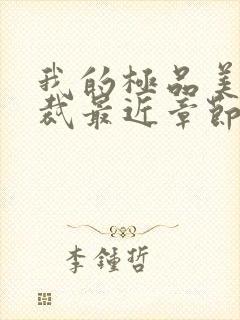 我的極品美
裁最近章節
李鍾哲